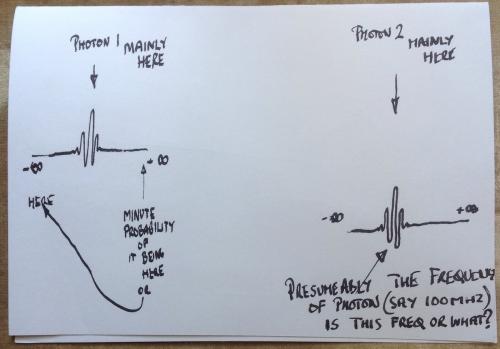 PHOTON 1 MAINLY
HERE
-∞ +∞
HERE
MINUTE
PROBABILITY
OF
IT BEING
HERE
OR
PHOTON 2 MAINLY
HERE
-∞ +∞
PRESUMEABLY THE FREQUENCY
OF PHOTON (SAY 100MHZ)
IS THIS FREQ OR WHAT?